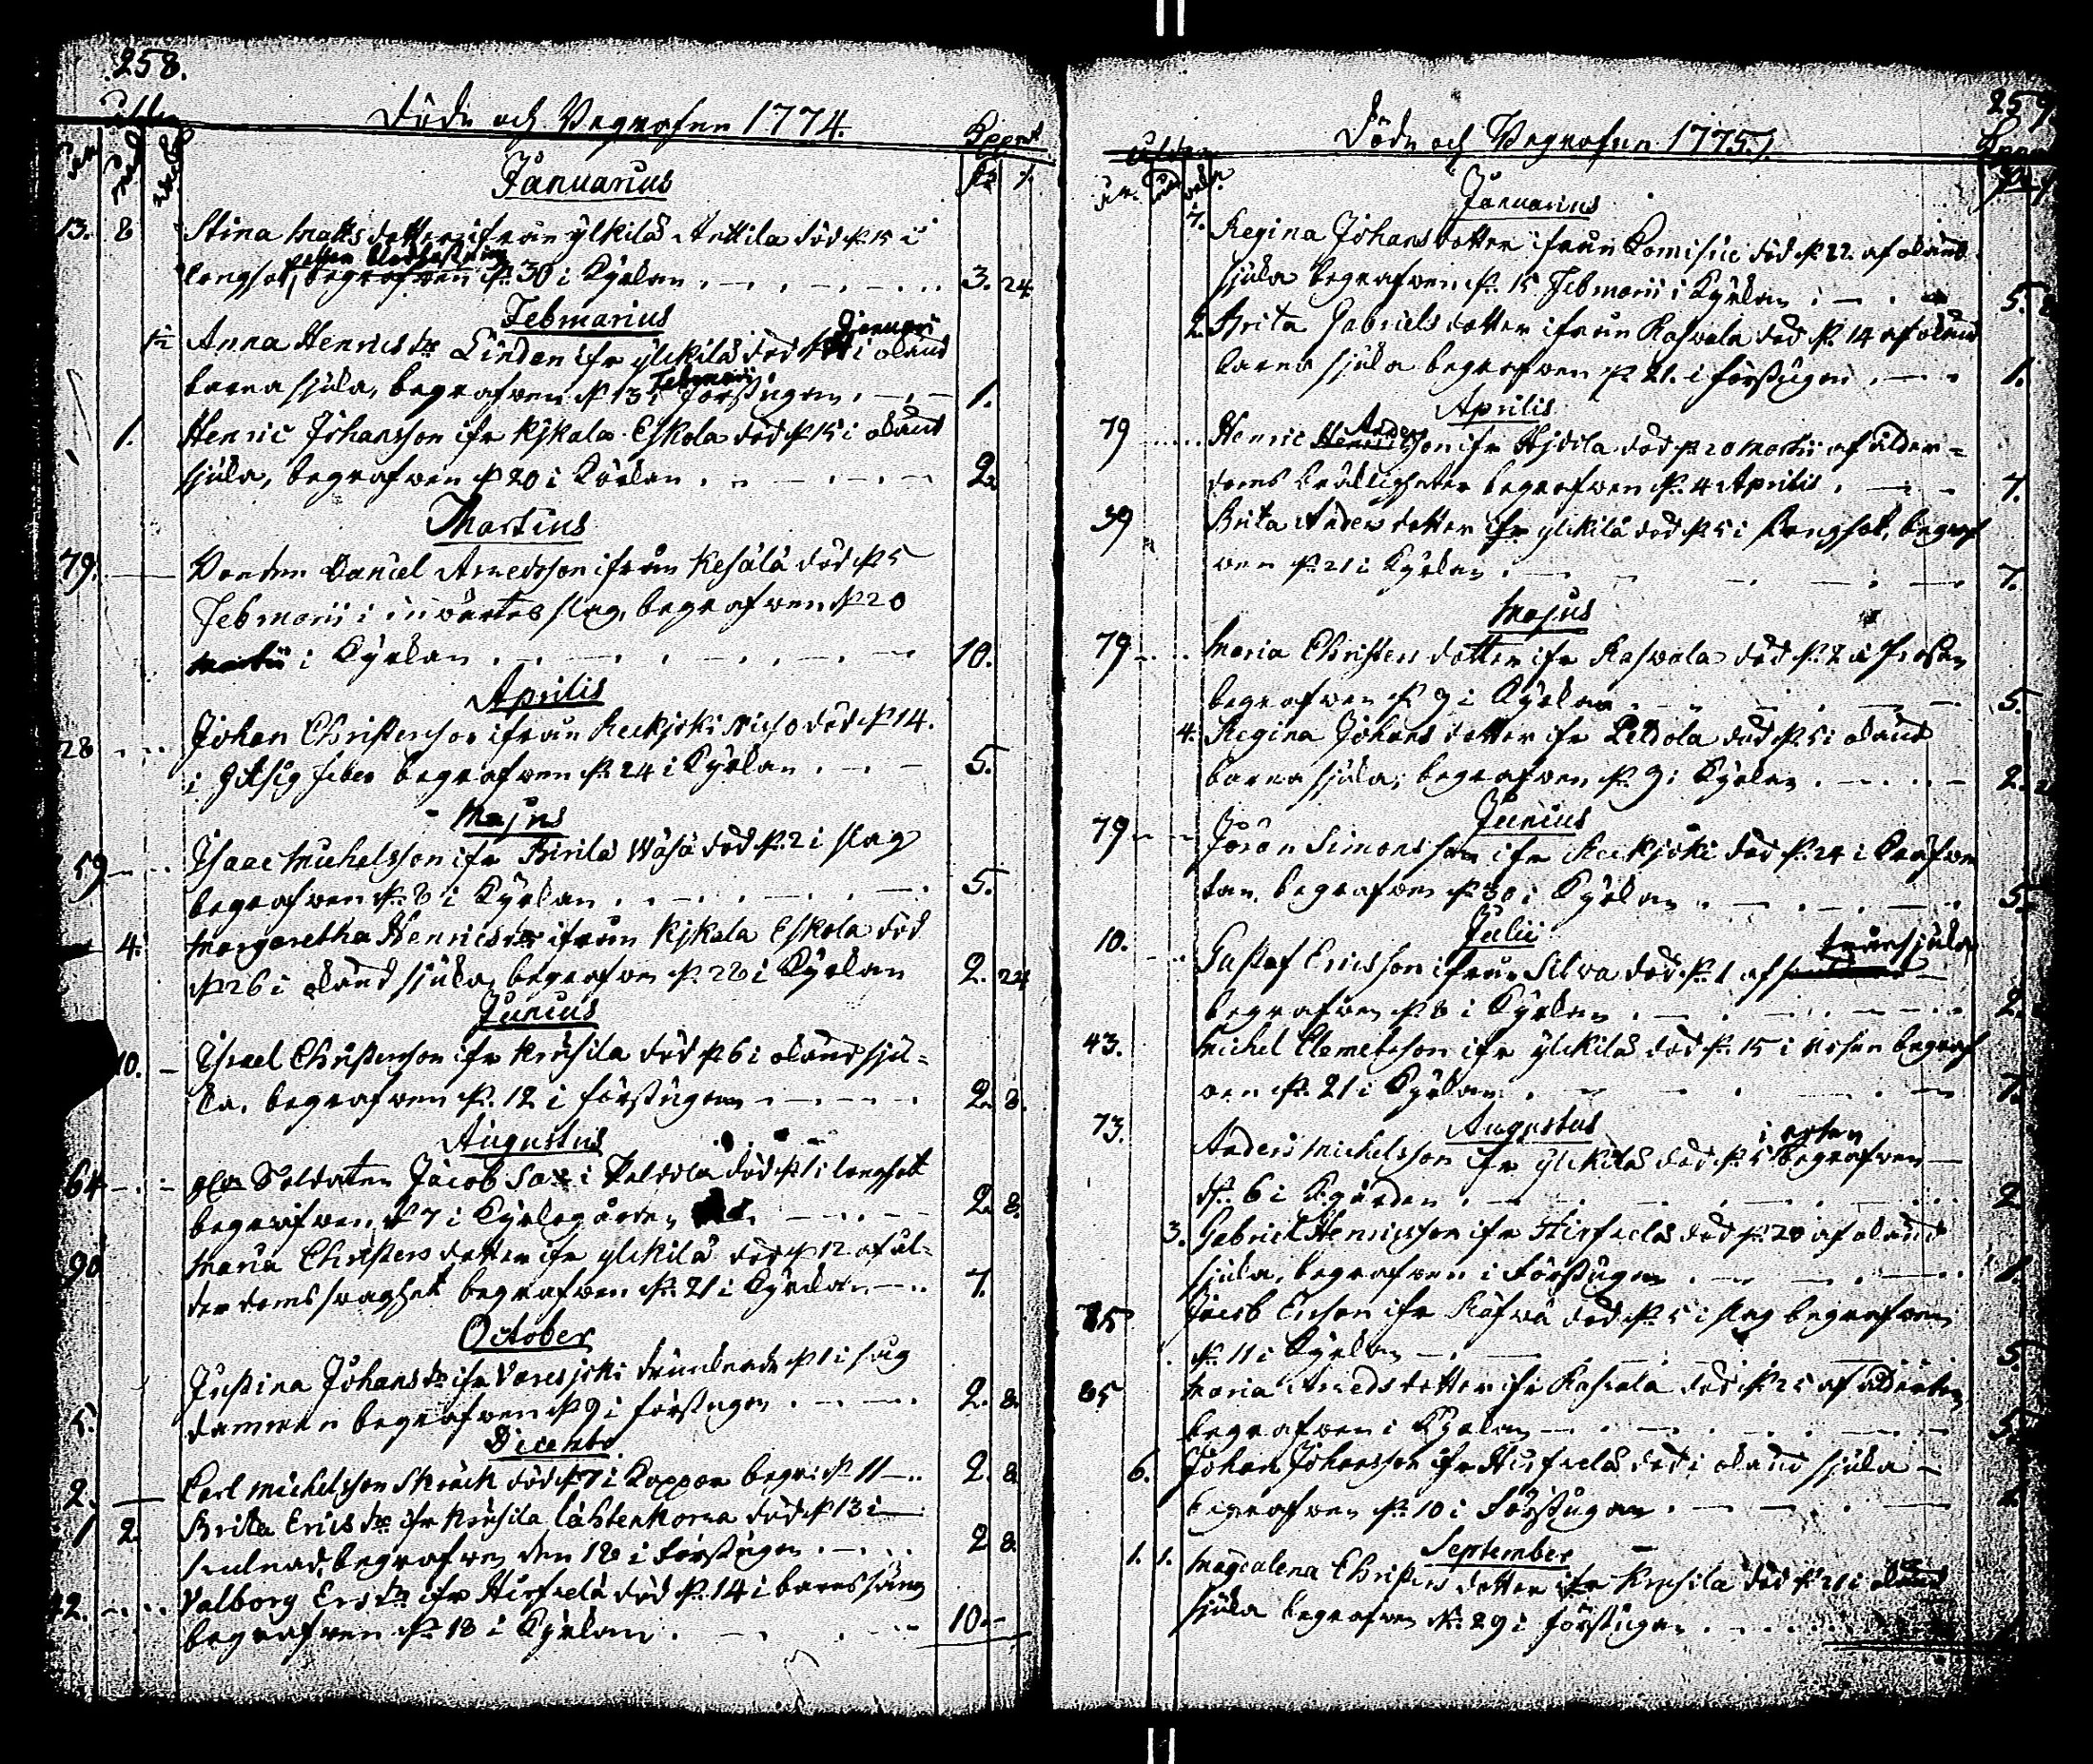 258.
Ålder
Döde och Begrafne 1774.
Januarius
13. 8 Stina Mattsdotter ifrån Ylikilä Anttila död d. 15 i
langsot, begrafwen d. 30 i Kyrkan 3. 24
Februarius
Januari
Anna Henricsdr Linden ifr Ylikilä död i okänd
Februarii
barnasjuka, begrafwen d. 13 i Förstugun 1.
1. Henric Johansson ifr Kjkala Eskola död d. 15 i okänd
sjuka, begrafwen d. 20 i Körkan 2.
Martius
79. Bonden Daniel Arnedsson ifrån Kesälä död d. 5
Februarii i inwärtes slag, begrafwen d. 20
Martii i Kyrkan 10.
Aprilis
28 Johan Christersson ifrån Reckjoki död d. 14.
i Hitsig feber begrafwen d. 24 i Kyrkan 5.
Majus
59 Isaac Michelsson ifr Birilä död d. 2 i slag
begrafwen d. 8 i Kyrkan 5.
4. Margaretha Henricsdr ifrån Kjkala Eskola död
d. 26 i okänd sjuka, begrafwen d. 28 i Kyrkan 2. 24
Junius
10. Israel Christersson ifr Krusila död d. 6 i okänd sju-
ka, begrafwen d. 12 i förstugun 2. 8.
Augustus
64 Soldaten Jacob Sax i Peldola död d. 1 i langsot
begrafwen d. 7 i Kyrkogården 2. 8.
90 Maria Christersdotter ifr Ylikilä död d. 12 af ål-
derdoms swaghet begrafwen d. 21 i Kyrkan 7.
October
Justina Johansdr ifr Varesjoki drunknade d. 1 i såg
5. dammen begrafwen d. 9 i förstugun 2. 8.
December
2. Carl Michelsson Skräck död d. 7 i Koppor begr. d. 11 2. 8.
1 2. Brita Ericsdr ifr Krusila Lähteenkorva död d. 13 i
swlnad, begrafwen den 18 i förstugun 2 8.
42. Valborg Ersdr ifr Hirfvelä död d. 14 i barnssäng
begrafwen d. 18 i Kyrkan 10.
259
Ålder
Döde och Begrafne 1775.
Januarius
7. Regina Johansdotter ifrån död d. 22 af okänd
sjuka begrafwen d. 15 Februarii i Kyrkan 5.
2. Brita Gabrielsdotter ifrån Raswala död d. 14 af okänd
barnasjuka begrafwen d. 21. i förstugun 1.
Aprilis
Anders
79 Henric son ifr död d. 20 Martii af ålder-
doms bräcklighet begrafwen d. 4 Aprilis 7.
39 Brita Andersdotter ifr Ylikilä död d. 5 i langsot, begraf
wen d. 21 i Kyrkan 7.
Majus
79 Maria Christersdotter ifr Raswala död d. 2 i
begrafwen d. 7 i Kyrkan 5.
4. Regina Johansdotter ifr Peldola död d. 5 i okänd
barnasjuka, begrafwen d. 9 i Kyrkan 2.
Junius
79 Jöran Simonsson ifr Reckjoki död d. 24 i Kräfwe
tan, begrafwen d. 30 i Kyrkan 5.
Julii
10. Gustaf Ericsson ifrån Silwa död d. 1 af
begrafwen d. 8 i Kyrkan 2.
43. Michel Clemetsson ifr Ylikilä död d. 15 i rosen begraf
wen d. 21 i Kyrkan 7.
Augustus
i rosen
73. Anders Michelsson ifr Ylikilä död d. 5 begrafwen
d. 6 i Kgården 2
3. Gabriel Henricsson ifr Hirfvelä död d. 20 af okänd
sjuka, begrafwen i Förstugun 1.
Jacob Ericson ifr Räfwä död d. 5 i slag begrafwen
d. 11 i Kyrkan 5.
85 Maria Arnedsdotter ifr Raswala död d. 25 af ålderdom
begrafwen i Kyrkan 5.
6. Johan Johansson ifr Hirfvelä död i okänd sjuka
begrafwen d. 10 i Förstugun
September
1. 1. Magdalena Christersdotter ifr Krusila död d. 21 i okänd
sjuka begrafwen d. 29 i förstugun